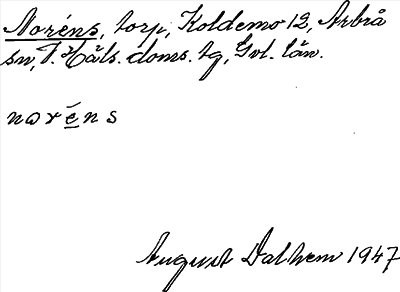 Noréns, torp, Koldemo 12, Arbrå
sn, V. Häls. doms. tg, Gvl. län.
noréns
August Dalhem 1947